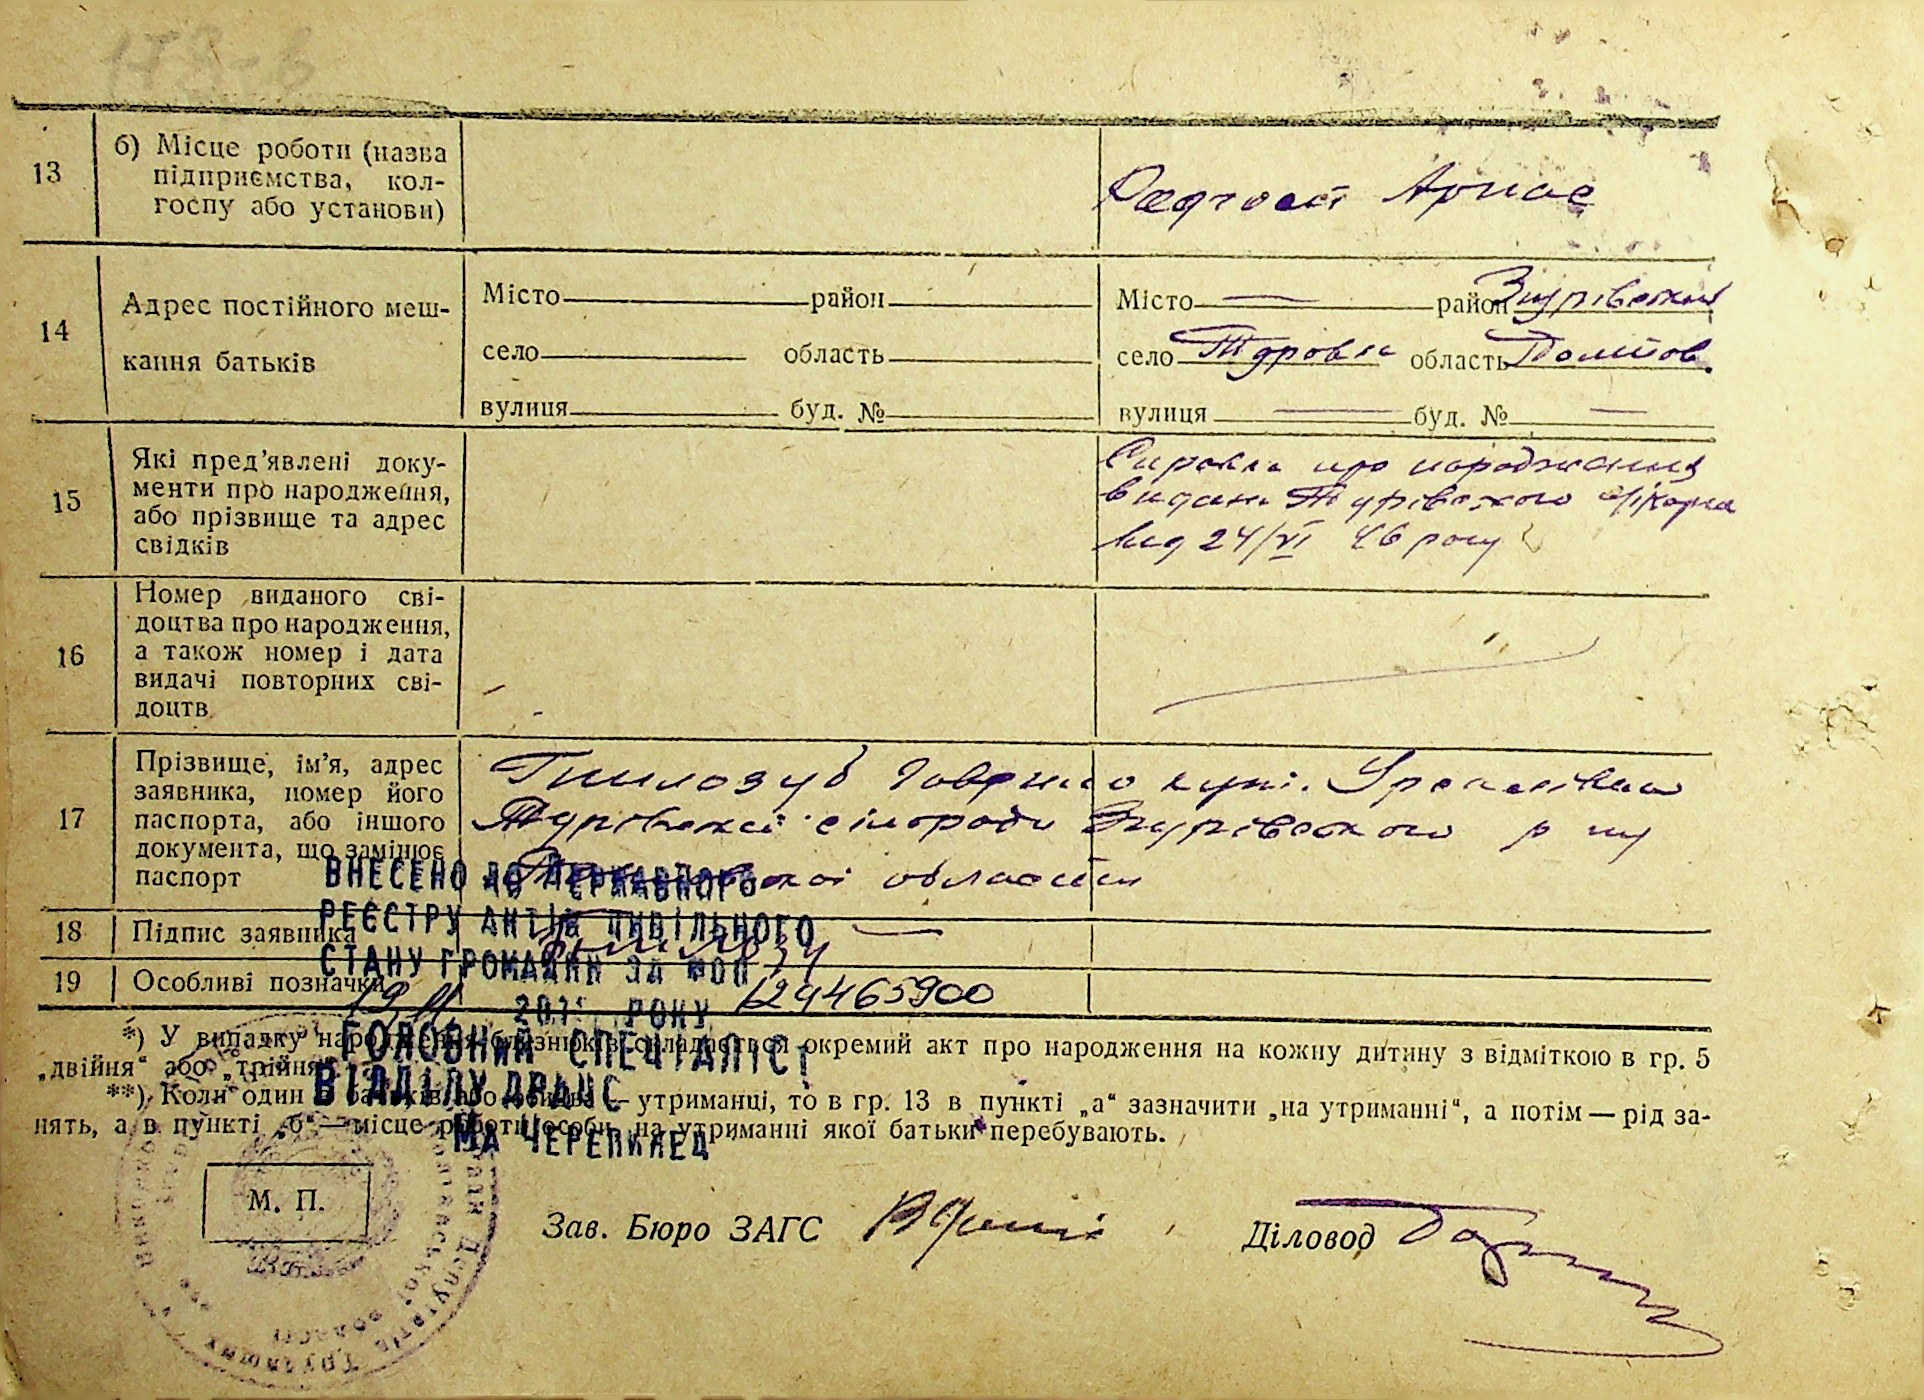 13
б) Місце роботи (назва
підприємства, кол-
госпу або установи)
14
Адрес постійного меш-
кання батьків
Місто район
село область
вулиця буд. №
Місто — район Згурівський
село Турівка область Полтав.
вулиця — буд. № —
15
Які пред'явлені доку-
менти про народження,
або прізвище та адрес
свідків
Справка про народження
видана Турівского
від 24/VI 46 року
16
Номер виданого сві-
доцтва про народження,
а також номер і дата
видачі повторних сві-
доцтв
17
Прізвище, ім'я, адрес
заявника, номер його
паспорта, або іншого
документа, що замінює
паспорт
Гнилозуб
Турівської сільради Згурівського р-ну
області
18 Підпис заявника
19 Особливі позначки
ВНЕСЕНО ДО ДЕРЖАВНОГО
РЕЄСТРУ АКТІВ ЦИВІЛЬНОГО
СТАНУ ГРОМАДЯН ЗА №
РОКУ
ГОЛОВНИЙ СПЕЦІАЛІСТ
ВІДДІЛУ ДРАЦС
*) У випадку народження близнюків складається окремий акт про народження на кожну дитину з відміткою в гр. 5
„двійня“ або „трійня“.
**) Коли один з батьків або обидва — утриманці, то в гр. 13 в пункті „а“ зазначити „на утриманні“, а потім — рід за-
нять, а в пункті „б“ — місце роботи особи, на утриманні якої батьки перебувають.
М. П.
Зав. Бюро ЗАГС
Діловод